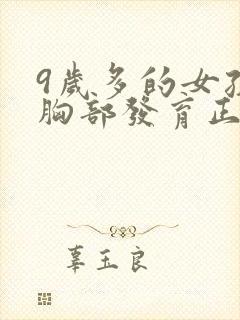 9歲多的女孩
胸部發育正
辜玉良